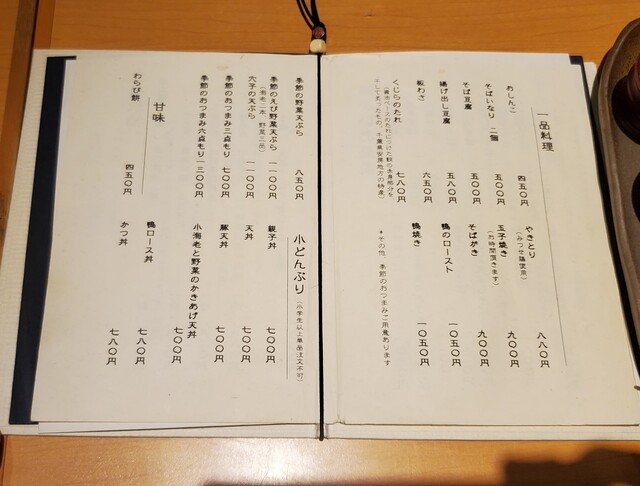 一品料理
おしんこ 四五〇円
そばいなり 二個 五〇〇円
そば豆腐 五〇〇円
揚げ出し豆腐 五八〇円
板わさ 六五〇円
くじらのたれ 七八〇円
やきとり 八八〇円
(みつせ鶏使用)
玉子焼き 九〇〇円
(お時間頂きます)
そばがき 九〇〇円
鴨のロースト 一〇五〇円
鴨焼き 一〇五〇円
*その他、季節のおつまみご用意あります
季節の野菜天ぷら 八五〇円
季節のえび野菜天ぷら 一一〇〇円
(海老二本 野菜三品)
穴子の天ぷら 一一〇〇円
季節のおつまみ三点もり 七〇〇円
季節のおつまみ六点もり 一三〇〇円
甘味
わらび餅 四五〇円
小どんぶり (小学生以上単品注文不可)
親子丼 七〇〇円
天丼 七〇〇円
豚天丼 七〇〇円
小海老と野菜のかきあげ天丼 七〇〇円
鴨ロース丼 七八〇円
かつ丼 七八〇円